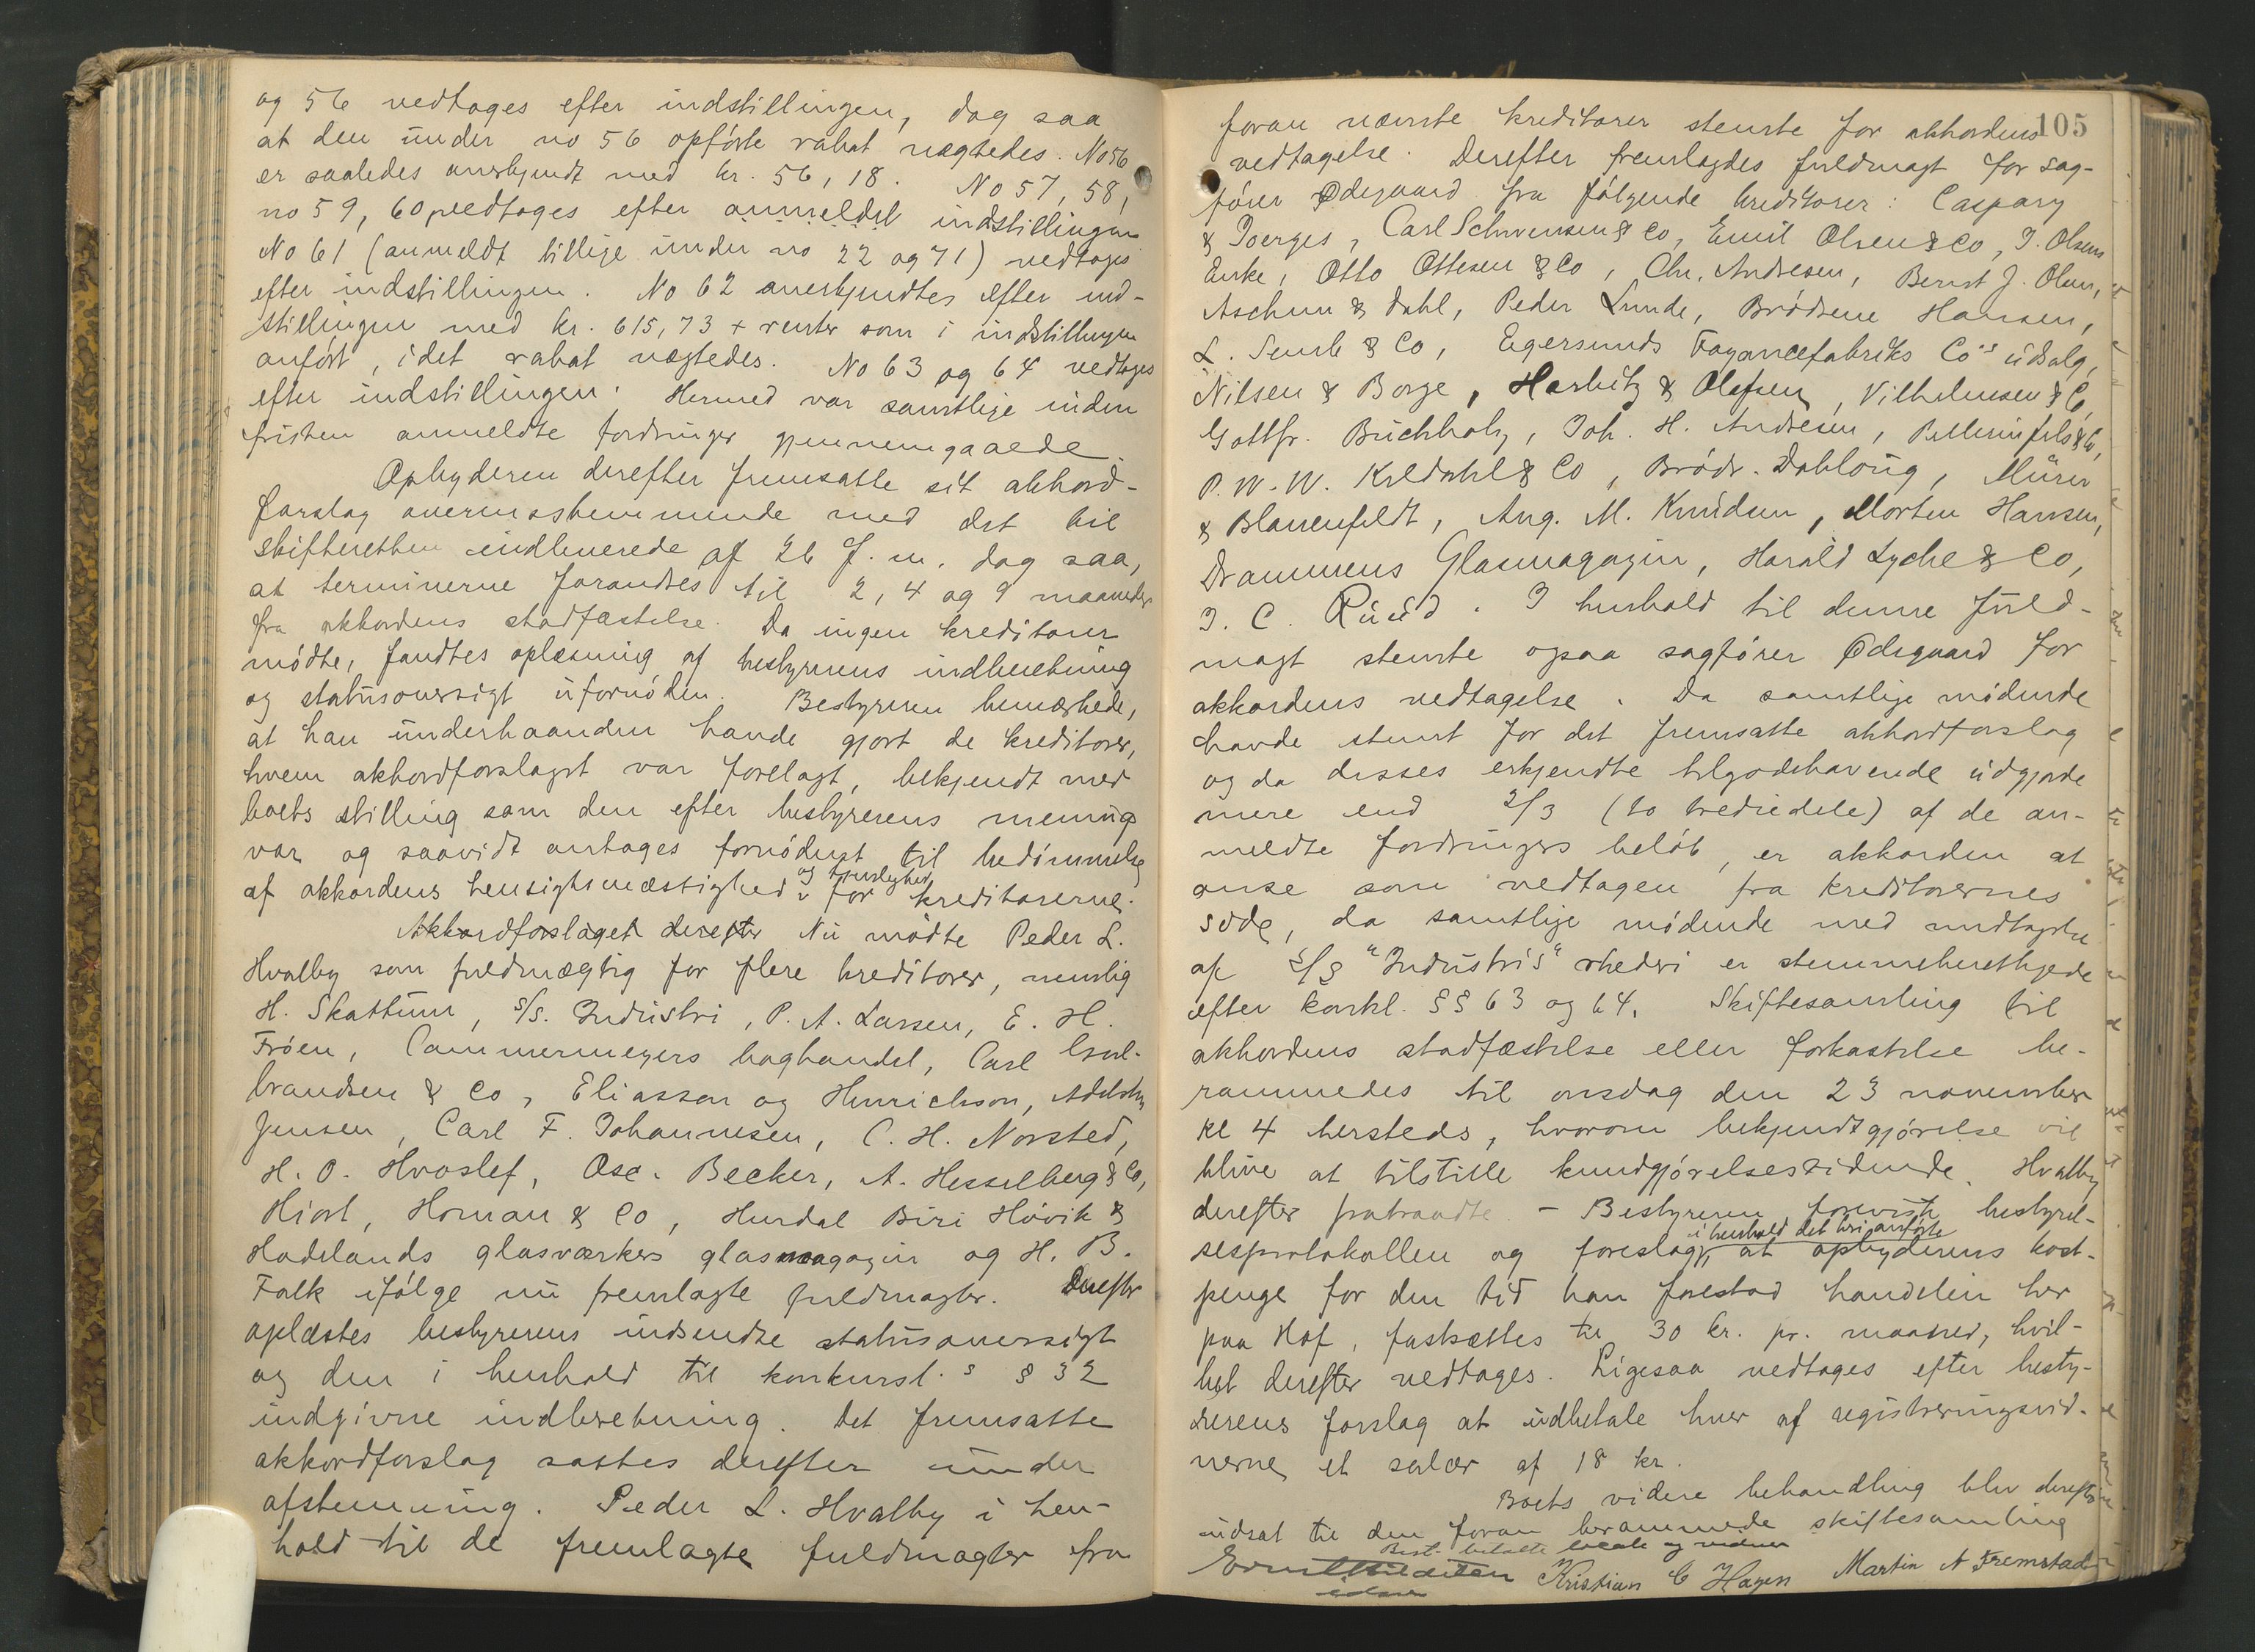 og 56 vedtages efter indstillingen, dog saa
at den under no 56 opførte rabat nægtedes. No 56
er saaledes anerkjendt med kr. 56,18. No 57, 58,
no 59, 60 vedtages efter anmeldel indstillingen
No 61 (anmeldt tillige under no 22 og 71) vedtages
efter indstillingen. No 62 anerkjendtes efter ind-
stillingen med kr. 615,73 + renter som i indstillingen
anført, idet rabat nægtedes. No 63 og 64 vedtages
efter indstillingen. Hermed var samtlige inden
fristen anmeldte fordringer gjennemgaaede.
Opbyderen derefter fremsatte sit akkord-
forslag overensstemmende med det til
skifteretten indleverede af 26 f. m. dog saa,
at terminerne forandres til 2, 4 og 9 maaneder
fra akkordens stadfæstelse. Da ingen kreditorer
mødte, fandtes oplæsning af bestyrerens indberetning
og statusoversigt ufornøden. Bestyreren bemærkede,
at han underhaanden havde gjort de kreditorer,
hvem akkordforslaget var forelagt, bekjendt med
boets stilling som den efter bestyrerens mening
var og saavidt antages fornødent til bedømmelse
af akkordens hensigtsmæssighed og for kreditorerne.
Akkordforslaget derefter Nu mødte Peder L.
Hvalby som fuldmægtig for flere kreditorer, nemlig
H. Skattum, s/s. Industri, P. A. Larsen, E. H.
Frøen, Cammermeyers boghandel, Carl Gul-
brandsen & Co, Eliasson og Henrichson, Adelsten
Jensen, Carl F. Johannesen, C. H. Norsted,
H. O. Hvoslef, Osc. Becker, A. Hesselberg & Co,
Hiort, Homan & Co, Hurdal Biri Høvik &
Hadelands glasværkers glasmagazin og H. B.
Falk ifølge nu fremlagte fuldmagter. Derefter
oplæstes bestyrerens indsendte statusoversigt
og den i henhold til konkursl.s § 32
indgivne indberetning. Det fremsatte
akkordforslag sattes derefter under
afstemning. Peder L. Hvalby i hen-
hold til de fremlagte fuldmagter fra
105
foran nævnte kreditorer stemte for akkordens
vedtagelse. Derefter fremlagdes fuldmagt for sag-
fører Ødegaard fra følgende kreditorer: Caspary
& Joerges, Carl Schwensen & Co, Emil Olsen & Co, J. Olsens
Enke, Otto Ottesen & Co, Chr. Andresen, Bernt J. Olsen,
Aschum & Dahl, Peder Lunde, Brødrene Hansen,
L. Semb & Co, Egersunds Fayancefabriks Co's udsalg,
Nilsen & Borge, Harbitz & Olafsen, Vilhelmsen & Co
Gottfr. Buchholz, Joh. H. Andresen, & Co,
P. W. W. Kildahl & Co, Brødr. Dobloug, Mürer
& Blauenfeldt, Aug. M. Knudsen, Morten Hansen,
Drammens Glasmagazin, Harald Lyche & Co,
J. C. Ruud. I henhold til denne fuld-
magt stemte ogsaa sagfører Ødegaard for
akkordens vedtagelse. Da samtlige mødende
havde stemt for det fremsatte akkordforslag
og da disses erkjendte tilgodehavende udgjorde
mere end 2/3 (to trediedele) af de an-
meldte fordringers beløb, er akkorden at
anse som vedtagen fra kreditorernes
side, da samtlige mødende med undtagelse
af s/s "Industri's" rhederi er stemmeberettigede
efter konkl. §§ 63 og 64. Skiftesamling til
akkordens stadfæstelse eller forkastelse be-
rammedes til onsdag den 23 november
kl 4 hersteds, hvorom bekjendtgjørelse vil
blive at tilstille kundgjørelsestidende. Hvalby
derefter fratraadte. - Bestyreren foreviste bestyrel-
i henhold det heri anførte
sesprotokollen og foreslog, at opbyderens kost-
penge for den tid han forestod handelen her
paa Hof, fastsættes til 30 kr. pr. maaned, hvil-
ket derefter vedtages. Ligesaa vedtages efter besty-
rerens forslag at udbetale hver af registreringsvid-
nerne et salær af 18 kr.
Boets videre behandling blev derefter
udsat til den foran berammede skiftesamling
Best. betalte locale og vidner
Kristian C Hagen Martin A Fremstad